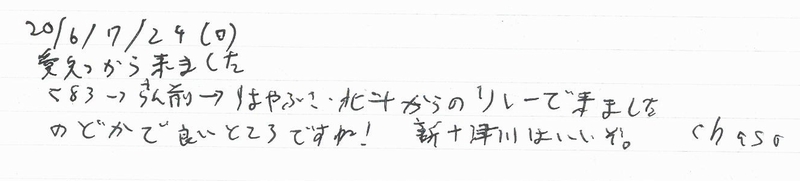 2016/7/24(日)
愛知から来ました
583→さん前→はやぶさ・北斗からのリレーで来ました
のどかで良いところですね! 新十津川はいいぞ。 chaso